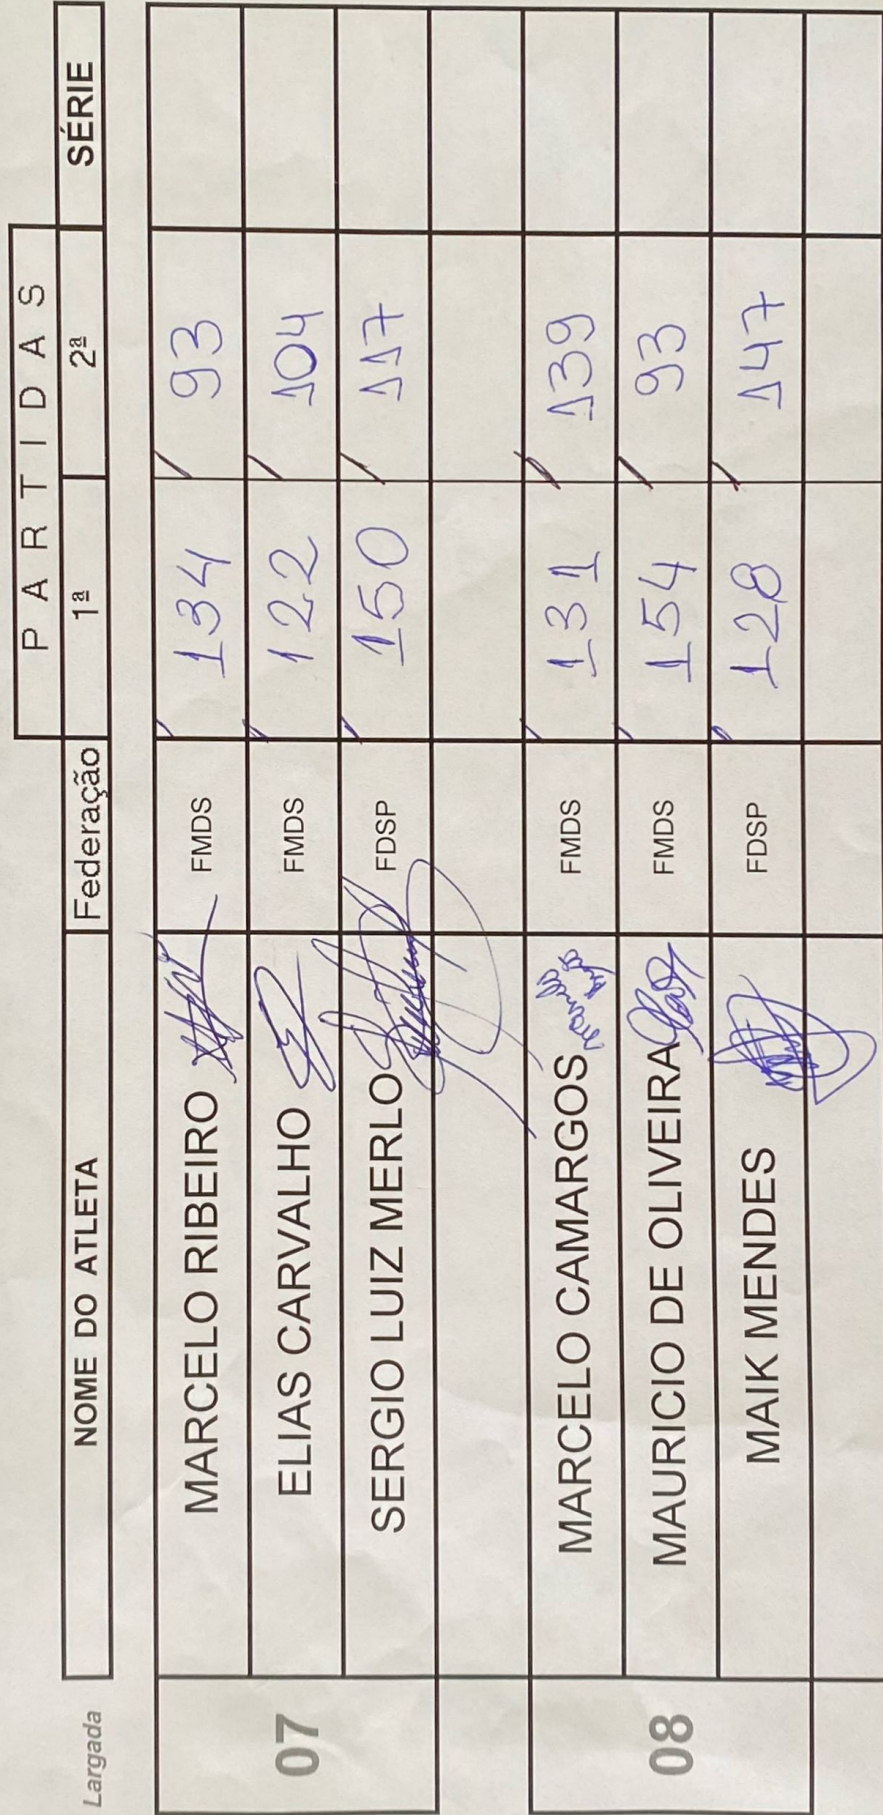 PARTIDAS
Largada NOME DO ATLETA Federação 1ª 2ª SÉRIE
07
MARCELO RIBEIRO FMDS 134 93
ELIAS CARVALHO FMDS 122 104
SERGIO LUIZ MERLO FDSP 150 117
08
MARCELO CAMARGOS FMDS 131 139
MAURICIO DE OLIVEIRA FMDS 154 93
MAIK MENDES FDSP 128 147